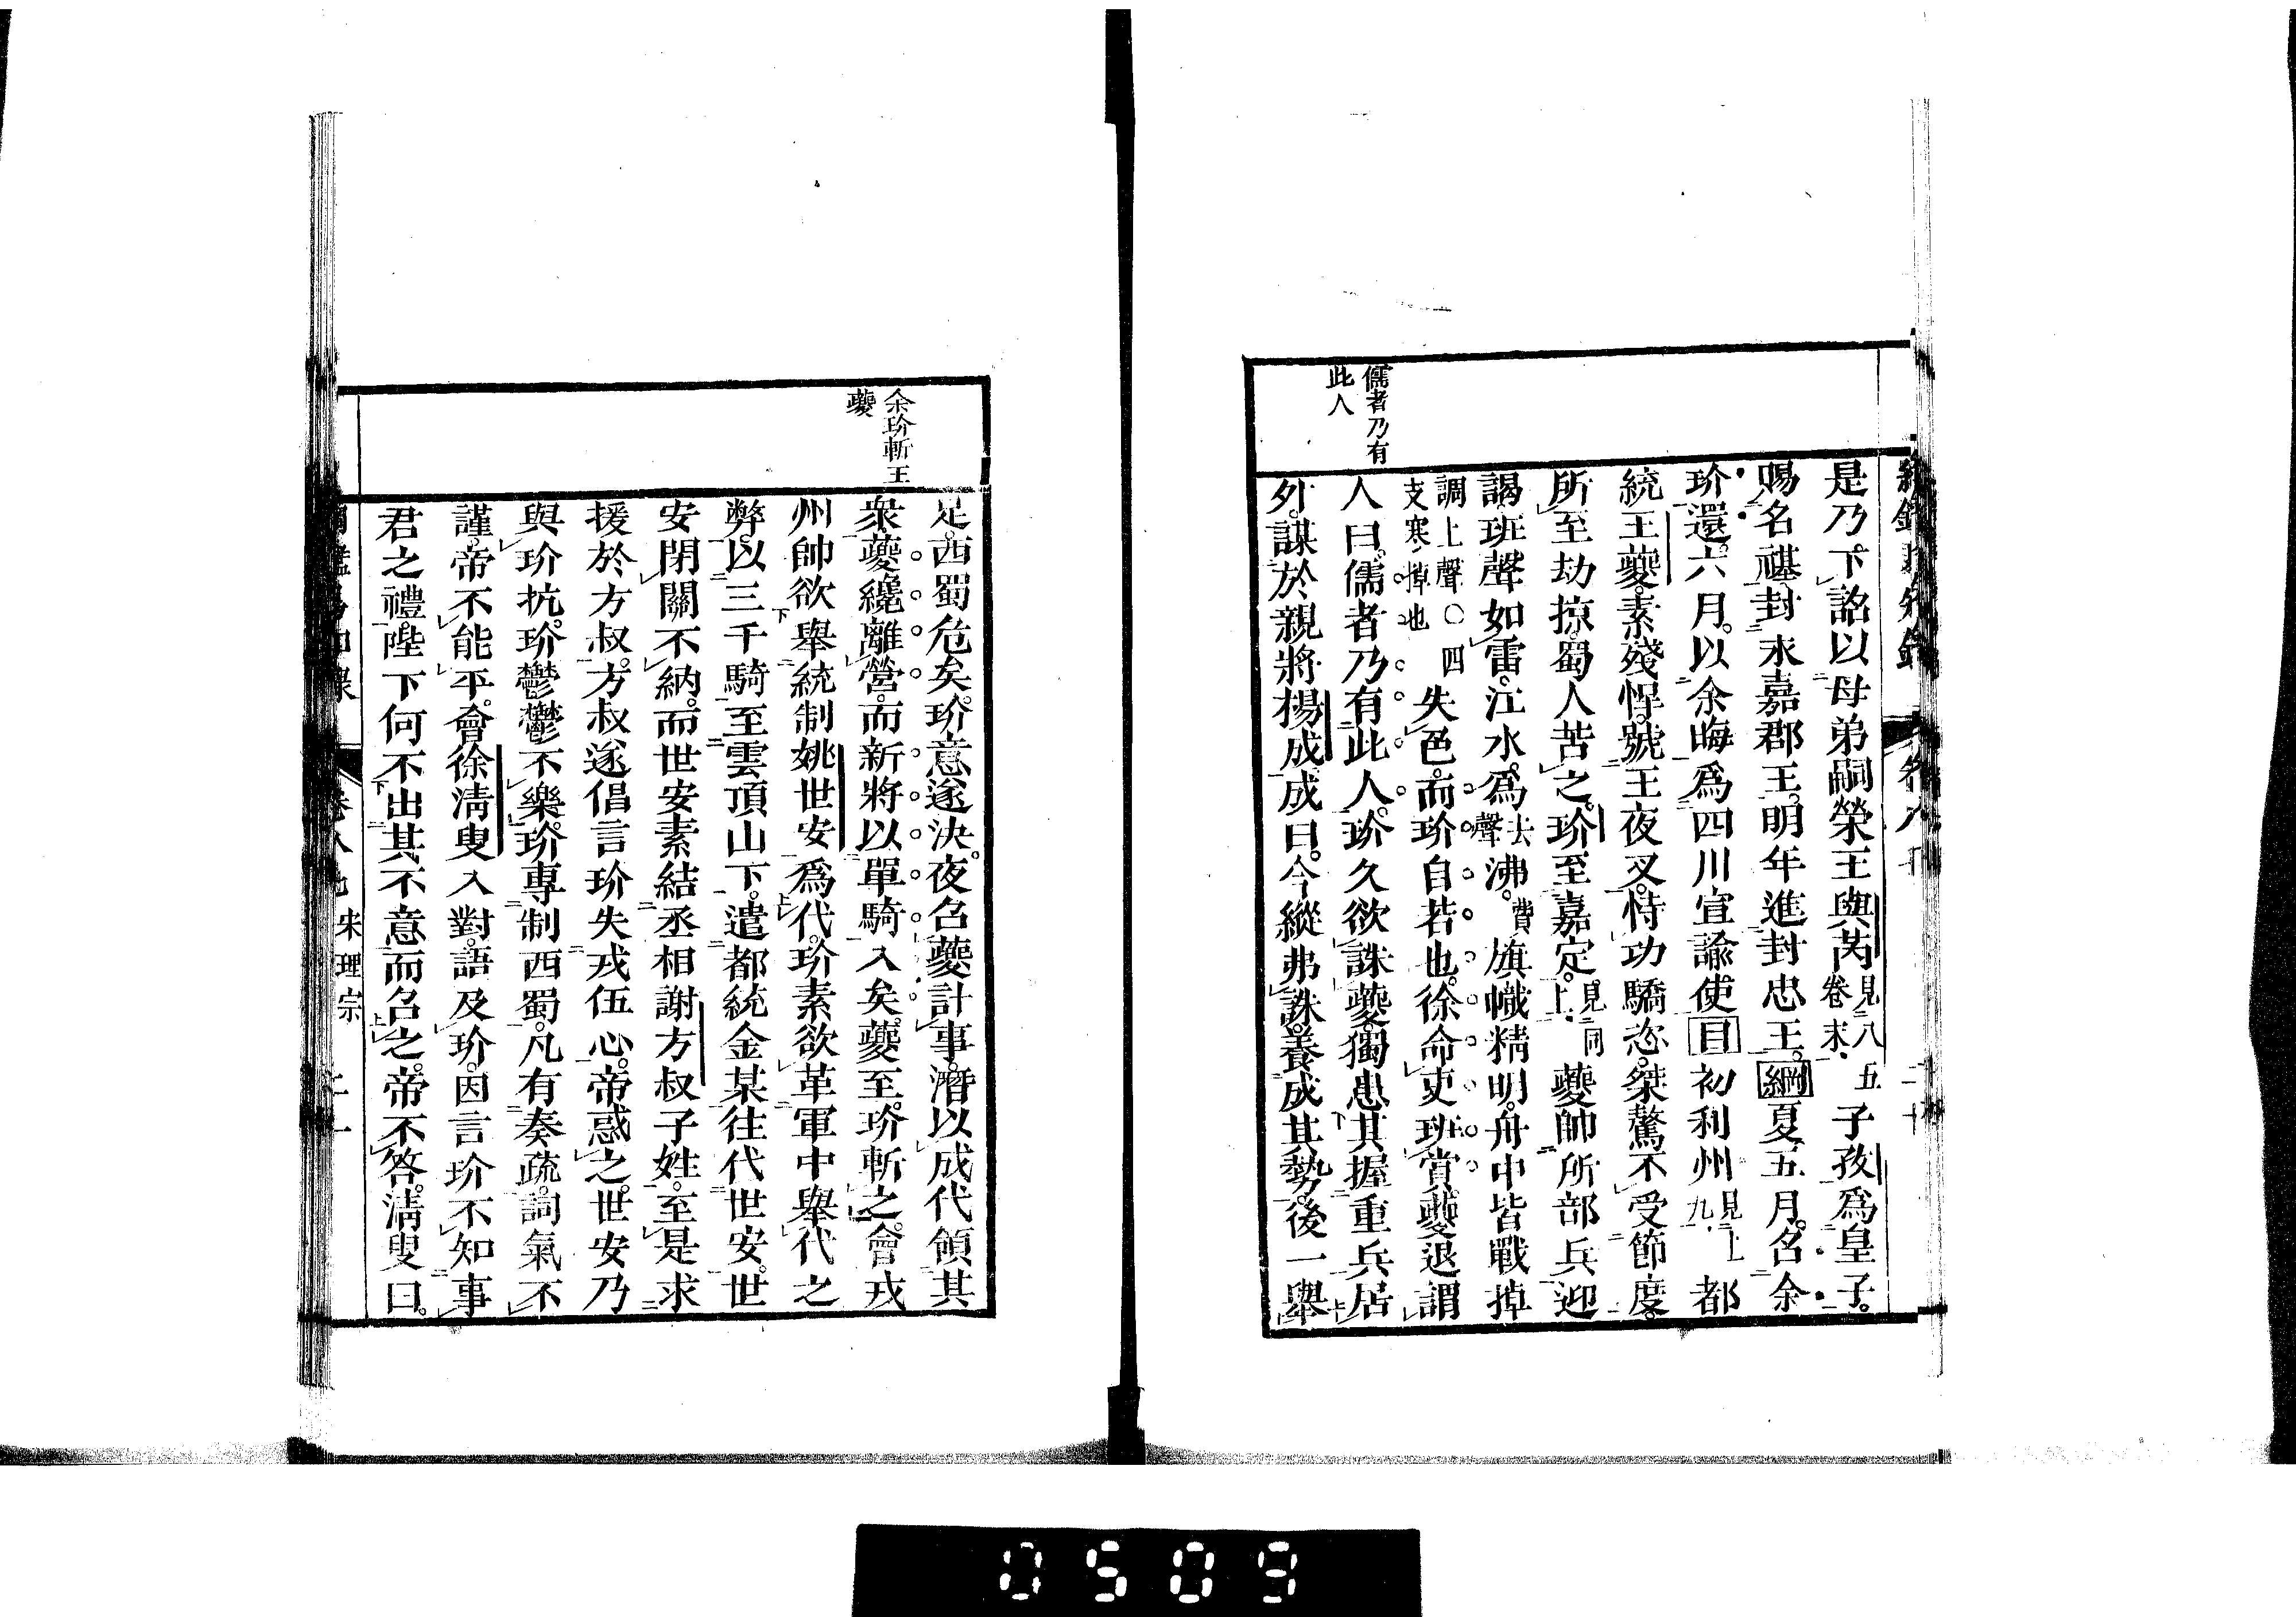 儒者乃有
此人
是乃下詔以母弟嗣榮王與芮見八五卷末子孜爲皇子。
賜名禥。封永嘉郡王。明年進封忠王。綱夏五月。召余
玠還。六月。以余晦爲四川宣諭使目初利州見上九都
統王夔。素殘悍。號王夜叉。恃功驕恣。桀驁不受節度。
所至劫掠。蜀人苦之。玠至嘉定。見同上夔帥所部兵迎
謁。班聲如雷。江水爲去聲沸。費旗幟精明。舟中皆戰掉
調上聲〇四支寒掉也失色。而玠自若也。徐命吏班賞。夔退謂
人曰。儒者乃有此人。玠久欲誅夔。獨患其握重兵居
外。謀於親將揚成。成曰。今縱弗誅。養成其勢。後一舉
余玠斬王
夔
足。西蜀危矣。玠意遂決。夜召夔計事。潛以成代領其
衆。夔纔離營。而新將以單騎入矣。夔至。玠斬之。會戎
州帥欲舉統制姚世安爲代。玠素欲革軍中舉代之
弊。以三千騎至雲頂山下。遣都統金某往代世安。世
安閉關不納。而世安素結丞相謝方叔子姪。至是求
援於方叔。方叔遂倡言玠失戎伍心。帝惑之。世安乃
與玠抗。玠鬱鬱不樂。玠專制西蜀。凡有奏疏。詞氣不
謹。帝不能平。會徐淸叟入對。語及玠。因言玠不知事
君之禮。陛下何不出其不意而召之。帝不答。淸叟曰。
宋理宗